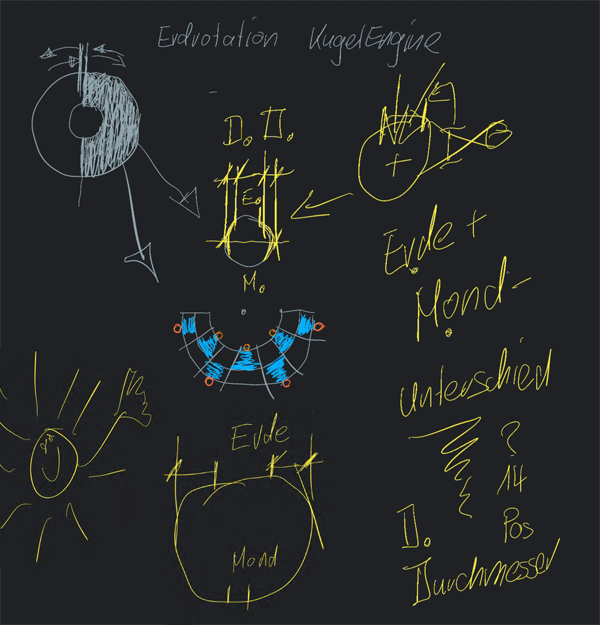 Erdrotation KugelEngine
D. D.
E.
M.
Erde +
Mond -
Unterschied
?
14
Pos
D.
Durchmesser
Erde
Mond